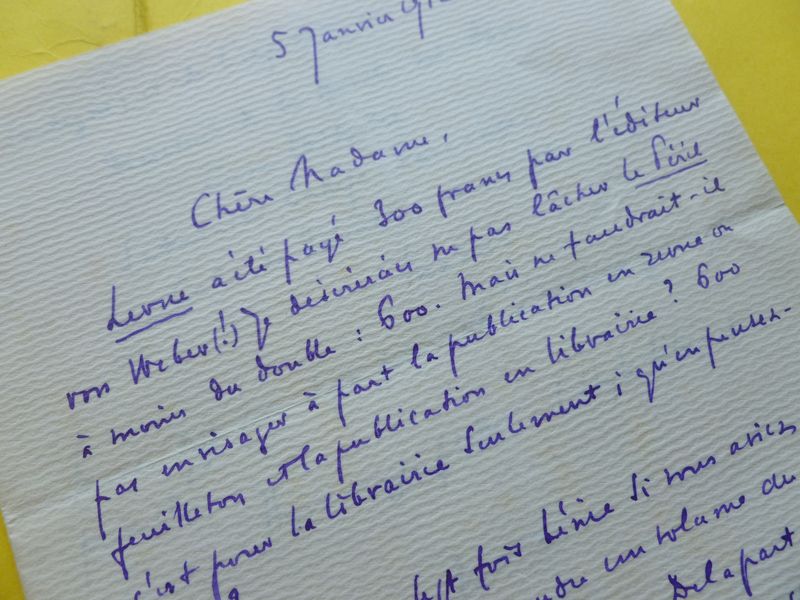 5 Janvier 191
Chère Madame,
Leone a été payé 300 francs par l'éditeur
von Weber(!) Je désirerais ne pas lâcher le Péril
à moins du double : 600. Mais ne faudrait-il
pas envisager à part la publication en revue ou
feuilleton et la publication en librairie ? 600
c'est pour la librairie seulement ; qu'en pensez-
fois bénie si vous aviez
un volume du
De la part